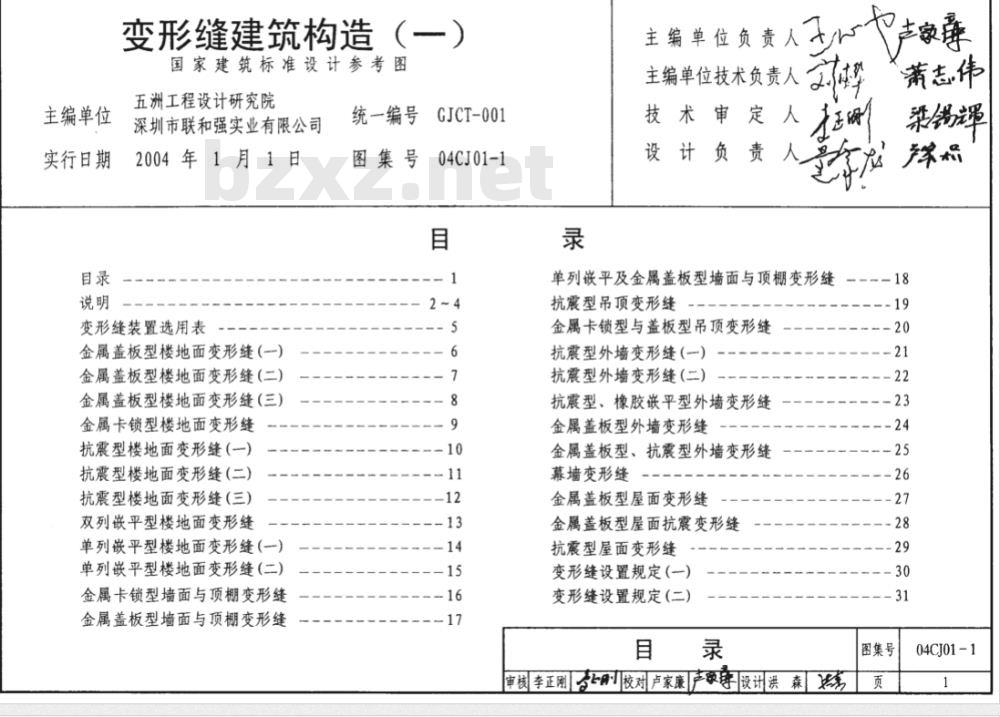 变形缝建筑构造（一）
国家建筑标准设计参考图
主编单位 五洲工程设计研究院
深圳市联和强实业有限公司
统一编号 GJCT-001
实行日期 2004 年 1 月 1 日
图集号 04CJ01-1
主编单位负责人
主编单位技术负责人 萧志伟
技术审定人 李正刚 梁锡辉
设计负责人
bzxz.net
目 录
目录 1
说明 2~4
变形缝装置选用表 5
金属盖板型楼地面变形缝(一) 6
金属盖板型楼地面变形缝(二) 7
金属盖板型楼地面变形缝(三) 8
金属卡锁型楼地面变形缝 9
抗震型楼地面变形缝(一) 10
抗震型楼地面变形缝(二) 11
抗震型楼地面变形缝(三) 12
双列嵌平型楼地面变形缝 13
单列嵌平型楼地面变形缝(一) 14
单列嵌平型楼地面变形缝(二) 15
金属卡锁型墙面与顶棚变形缝 16
金属盖板型墙面与顶棚变形缝 17
单列嵌平及金属盖板型墙面与顶棚变形缝 18
抗震型吊顶变形缝 19
金属卡锁型与盖板型吊顶变形缝 20
抗震型外墙变形缝(一) 21
抗震型外墙变形缝(二) 22
抗震型、橡胶嵌平型外墙变形缝 23
金属盖板型外墙变形缝 24
金属盖板型、抗震型外墙变形缝 25
幕墙变形缝 26
金属盖板型屋面变形缝 27
金属盖板型屋面抗震变形缝 28
抗震型屋面变形缝 29
变形缝设置规定(一) 30
变形缝设置规定(二) 31
目 录 图集号 04CJ01-1
审核 李正刚 校对 卢家廉 设计 洪 森 页 1